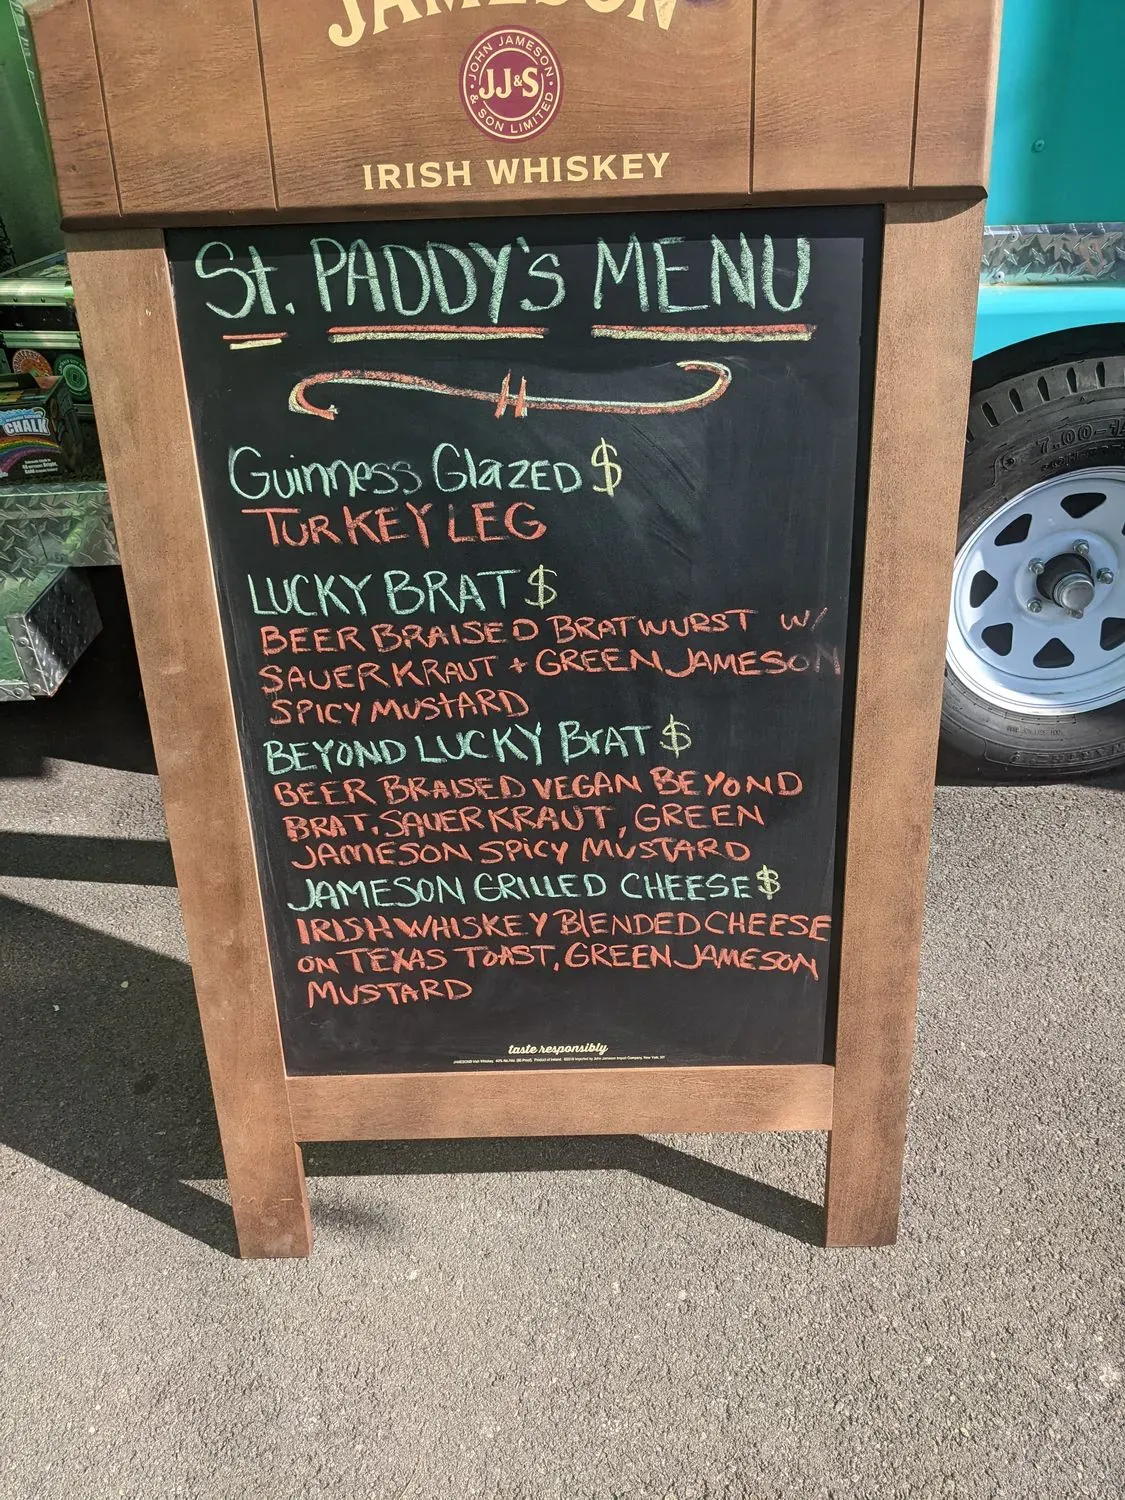 JAMESON
JOHN JAMESON
JJ&S
& SON LIMITED
IRISH WHISKEY
St. PADDY'S MENU
Guinness Glazed $
TURKEY LEG
LUCKY BRAT $
BEER BRAISED BRATWURST W/
SAUERKRAUT + GREEN JAMESON
SPICY MUSTARD
BEYOND LUCKY BrAT $
BEER BRAISED VEGAN BEYOND
BRAT, SAUERKRAUT, GREEN
JAMESON SPICY MUSTARD
JAMESON GRILLED CHEESE $
IRISH WHISKEY BLENDED CHEESE
ON TEXAS TOAST, GREEN JAMESON
MUSTARD
taste responsibly
CHALK
7.00-